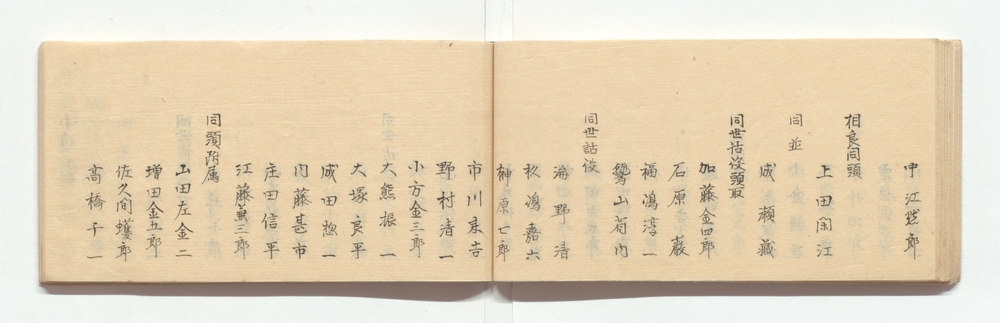 中江愁郎
相良同頭
上田閑江
同並
成瀬蔵
同世話役頭取
加藤金四郎
石原巌
福嶋淳一
勢山荷内
同世話役
瀧野久清
杉嶋嘉六
榊原七郎
市川泉吉
野村清一
小方金三郎
大熊振一
大塚良平
成田惣一
内藤甚市
庄田信平
江藤兼三郎
同頭附属
山田左金二
増田金五郎
佐久間蠖郎
高橋子一